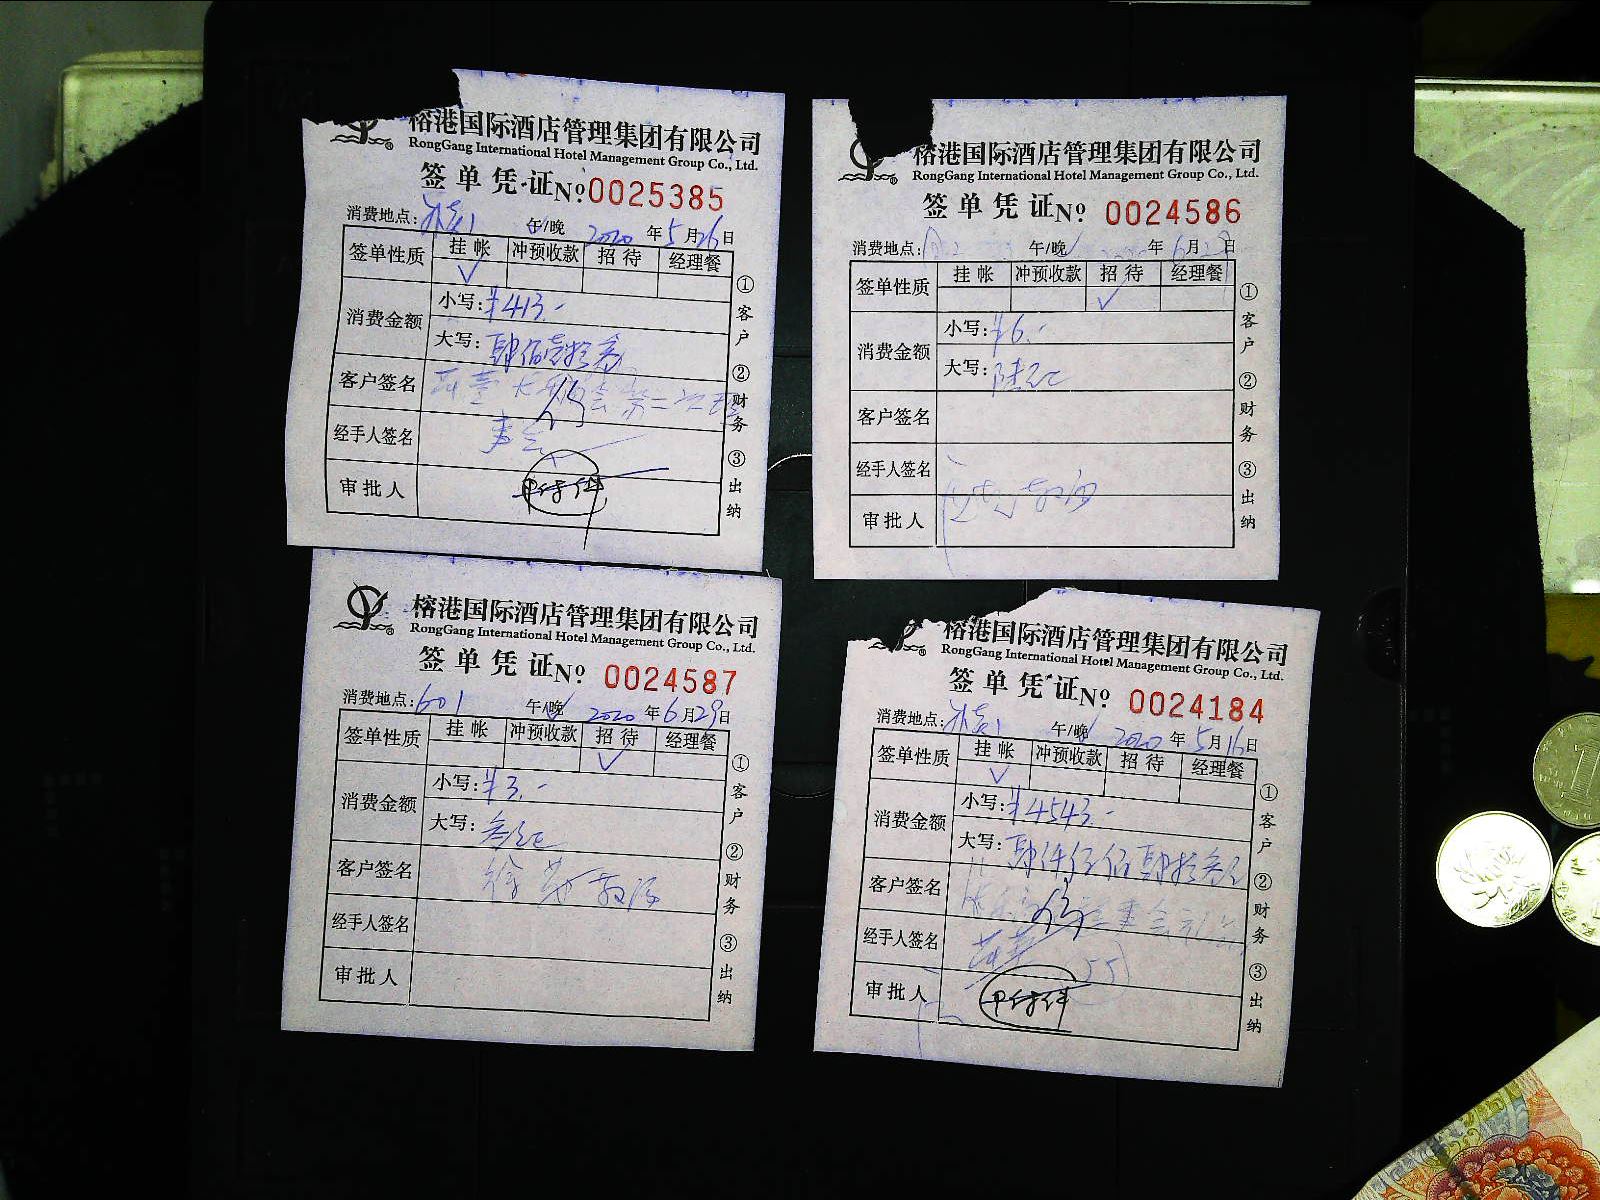 榕港国际酒店管理集团有限公司
RongGang International Hotel Management Group Co., Ltd.
签单凭证 Nº 0025385
消费地点: 午/晚 2020年5月26日
签单性质 挂帐 冲预收款 招待 经理餐
✓
消费金额 小写: ¥413.-
大写: 肆佰壹拾叁
客户签名
经手人签名
审批人
① 客户 ② 财务 ③ 出纳
榕港国际酒店管理集团有限公司
RongGang International Hotel Management Group Co., Ltd.
签单凭证 Nº 0024586
消费地点: 午/晚 年6月 日
签单性质 挂帐 冲预收款 招待 经理餐
✓
消费金额 小写: ¥6.-
大写: 陆元
客户签名
经手人签名
审批人
① 客户 ② 财务 ③ 出纳
榕港国际酒店管理集团有限公司
RongGang International Hotel Management Group Co., Ltd.
签单凭证 Nº 0024587
消费地点: 601 午/晚 2020年6月29日
签单性质 挂帐 冲预收款 招待 经理餐
✓
消费金额 小写: ¥3.-
大写: 叁元
客户签名
经手人签名
审批人
① 客户 ② 财务 ③ 出纳
榕港国际酒店管理集团有限公司
RongGang International Hotel Management Group Co., Ltd.
签单凭证 Nº 0024184
消费地点: 午/晚 2020年5月16日
签单性质 挂帐 冲预收款 招待 经理餐
✓
消费金额 小写: ¥4543.-
大写: 肆仟伍佰肆拾叁元
客户签名
经手人签名
审批人
① 客户 ② 财务 ③ 出纳